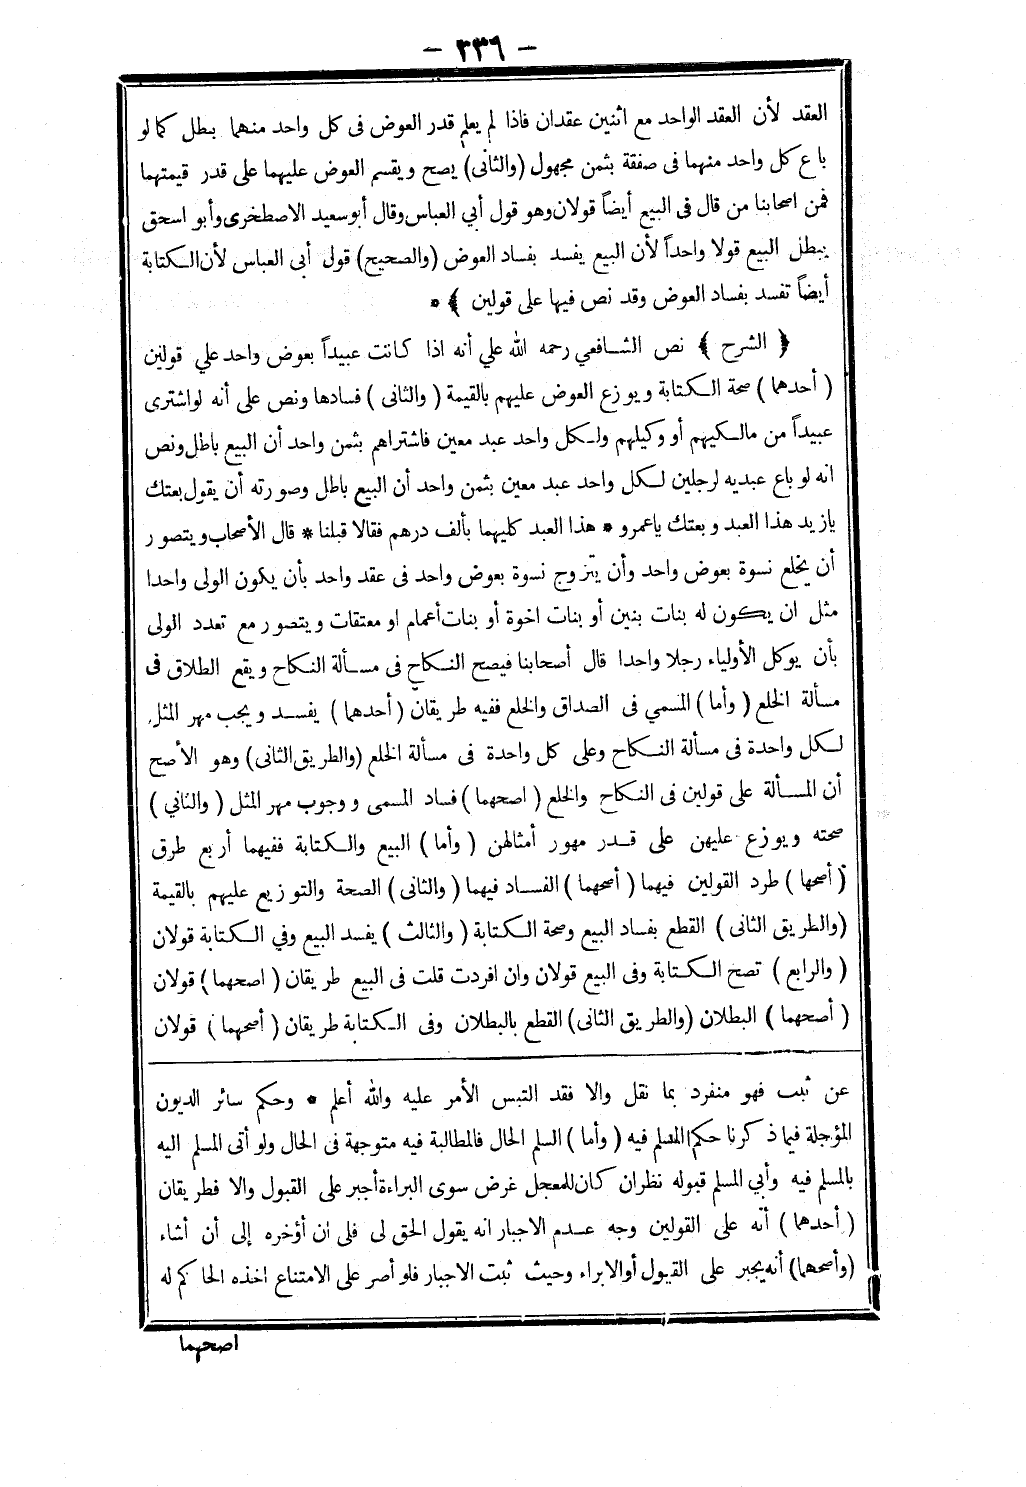 - ٣٣٦ -
العقد لأن العقد الواحد مع اثنين عقدان فاذا لم يعلم قدر العوض فى كل واحد منهما بطل كما لو
باع كل واحد منهما فى صفقة بثمن مجهول (والثانى) يصح ويقسم العوض عليهما على قدر قيمتهما
فمن اصحابنا من قال فى البيع أيضاً قولان وهو قول أبي العباس وقال أبو سعيد الاصطخرى وأبو اسحق
يبطل البيع قولا واحداً لأن البيع يفسد بفساد العوض (والصحيح) قول أبى العباس لأن الكتابة
أيضاً تفسد بفساد العوض وقد نص فيها على قولين ﴾ *
﴿ الشرح ﴾ نص الشافعي رحمه الله علي أنه اذا كانت عبيداً بعوض واحد علي قولين
( أحدهما ) صحة الكتابة ويوزع العوض عليهم بالقيمة ( والثانى ) فسادها ونص على أنه لو اشترى
عبيداً من مالكيهم أو وكيلهم ولكل واحد عبد معين فاشتراهم بثمن واحد أن البيع باطل ونص
انه لو باع عبديه لرجلين لكل واحد عبد معين بثمن واحد أن البيع باطل وصورته أن يقول بعتك
يازيد هذا العبد وبعتك ياعمرو * هذا العبد كليهما بألف درهم فقالا قبلنا * قال الأصحاب ويتصور
أن يخلع نسوة بعوض واحد وأن يتزوج نسوة بعوض واحد فى عقد واحد بأن يكون الولى واحدا
مثل ان يكون له بنات بنين أو بنات اخوة أو بنات أعمام او معتقات ويتصور مع تعدد الولى
بأن يوكل الأولياء رجلا واحدا قال أصحابنا فيصح النكاح فى مسألة النكاح ويقع الطلاق فى
مسألة الخلع ( وأما ) المسمي فى الصداق والخلع ففيه طريقان ( أحدهما ) يفسد ويجب مهر المثل
لكل واحدة فى مسألة النكاح وعلى كل واحدة فى مسألة الخلع (والطريق الثانى) وهو الأصح
أن المسألة على قولين فى النكاح والخلع ( اصحهما ) فساد المسمى ووجوب مهر المثل ( والثاني )
صحته ويوزع عليهن على قدر مهور أمثالهن ( وأما ) البيع والكتابة ففيهما أربع طرق
( أصحها ) طرد القولين فيهما ( أصحهما ) الفساد فيهما ( والثانى ) الصحة والتوزيع عليهم بالقيمة
(والطريق الثانى ) القطع بفساد البيع وصحة الكتابة ( والثالث ) يفسد البيع وفي الكتابة قولان
( والرابع ) تصح الكتابة وفى البيع قولان وان افردت قلت فى البيع طريقان ( اصحهما ) قولان
( أصحهما ) البطلان (والطريق الثانى) القطع بالبطلان وفى الكتابة طريقان ( أصحهما ) قولان
عن ثبت فهو منفرد بما نقل والا فقد التبس الأمر عليه والله أعلم * وحكم سائر الديون
المؤجلة فيما ذكرنا حكم المسلم فيه ( وأما ) السلم الحال فالمطالبة فيه متوجهة فى الحال ولو أتى المسلم اليه
بالمسلم فيه وأبي المسلم قبوله نظر ان كان للمعجل غرض سوى البراءة أجبر على القبول والا فطريقان
( أحدهما ) أنه على القولين وجه عدم الاجبار انه يقول الحق لى فلى ان أؤخره إلى أن أشاء
(وأصحهما) أنه يجبر على القبول أو الابراء وحيث ثبت الاجبار فلو أصر على الامتناع اخذه الحاكم له
اصحهما